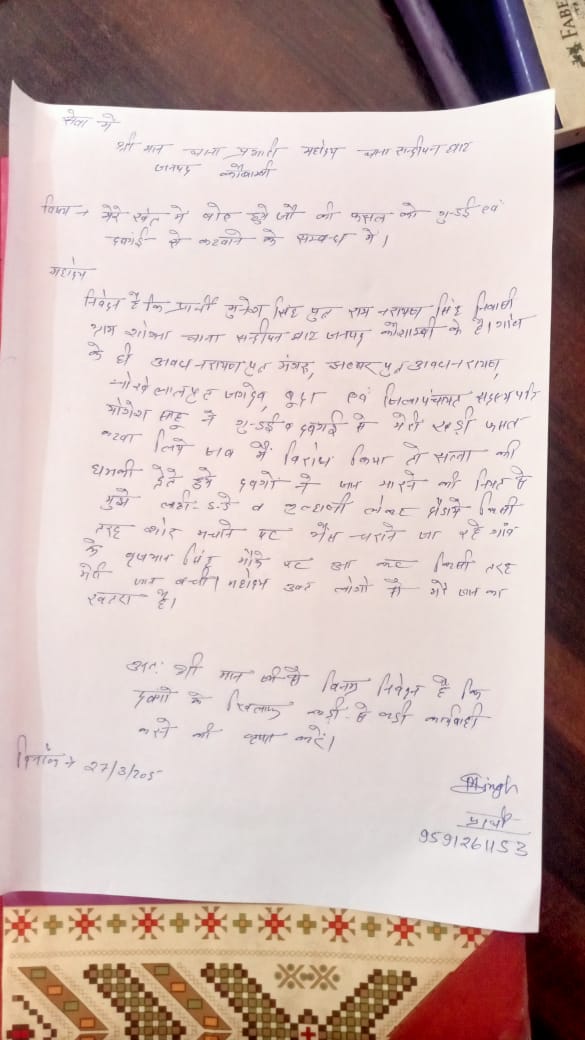 FABE
सेवा में
श्री मान थाना प्रभारी महोदय थाना सन्दीपन घाट
जनपद कौशाम्बी
विषय → मेरे खेत में बोए हुये जौ की फसल को गुन्डई एवं
दबंगई से कटवाने के सम्बन्ध में।
महोदय
निवेदन है कि प्रार्थी सिंह पुत्र राम नरायण सिंह निवासी
ग्राम थाना सन्दीपन घाट जनपद कौशाम्बी के है। गांव
के ही अवध नरायण पुत्र मंगरू, पुत्र अवध नरायण,
पुत्र जगदेव, एवं जिला पंचायत सदस्य पति
योगेश साहू ने गुन्डई व दबंगई से मेरी खड़ी फसल
कटवा लिये जब मैं विरोध किया तो सत्ता की
धमकी देते हुये दबंगो ने जान मारने की नियत से
मुझे लाठी-डन्डे व कुल्हाड़ी लेकर दौड़ाये किसी
तरह शोर मचाने पर भैंस चराने जा रहे गांव
के सिंह मौके पर आ कर किसी तरह
मेरी जान बची। महोदय उक्त लोगो से मेरे जान का
खतरा है।
अतः श्री मान जी से विनम्र निवेदन है कि
दबंगो के खिलाफ कड़ी से कड़ी कार्यवाही
करने की कृपा करें।
दिनांक → 27/3/205
Singh
प्रार्थी
9591261153